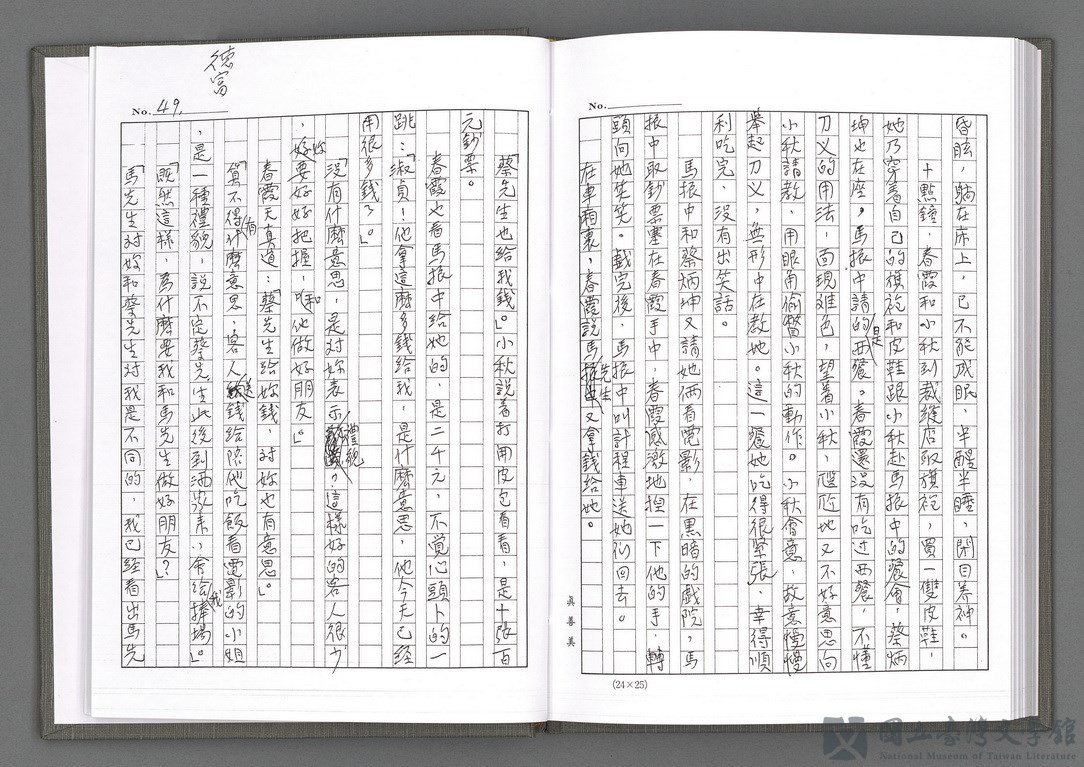 No.
昏眩,躺在床上,已不能成眠,半醒半睡,閉目养神。
十點鐘,春霞和小秋到裁縫店取旗袍,買一雙皮鞋,
她乃穿着自己的旗袍和皮鞋跟小秋赴馬振中的餐會,蔡炳
坤也在座。馬振中請的是西餐。春霞還没有吃过西餐,不懂
刀义的用法,面現难色,望着小秋,尷尬地又不好意思向
小秋請教,用眼角偷瞥小秋的動作。小秋會意,故意慢慢
舉起刀义,無形中在教她。這一餐她吃得很緊張,幸得順
利吃完,没有出笑話。
馬振中和蔡炳坤又請她俩看電影,在黑暗的戲院,馬
振中取鈔票塞在春霞手中,春霞感激地揑一下他的手,轉
頭向她笑笑。戲完後,馬振中叫計程車送她们回去。
在車廂裏,春霞説馬先生又拿錢給她。
真善美
(24×25)
德富
No. 49.
「蔡先生也給我錢。」小秋説着打開皮包看看,是十張百
元鈔票。
春霞也看馬振中給她的,是二千元,不覚心頭卜的一
跳:「淑貞!他拿這麼多錢給我,是什麼意思,他今天已經
用很多錢了。」
「没有什麼意思,是对妳表示禮貌,這樣好的客人很少
,妳要好好把握,和他做好朋友。」
春霞天真道:「蔡先生給妳錢,对妳也有意思。」
「算不得有什麼意思,客人送錢給陪他吃飯看電影的小姐
,是一種禮貌,説不定蔡先生此後到酒家来,會給我捧場。」
「既然這樣,為什麼要我和馬先生做好朋友?」
「馬先生对妳和蔡先生对我是不同的,我已經看出馬先
國立臺灣文學館
National Museum of Taiwan Literature